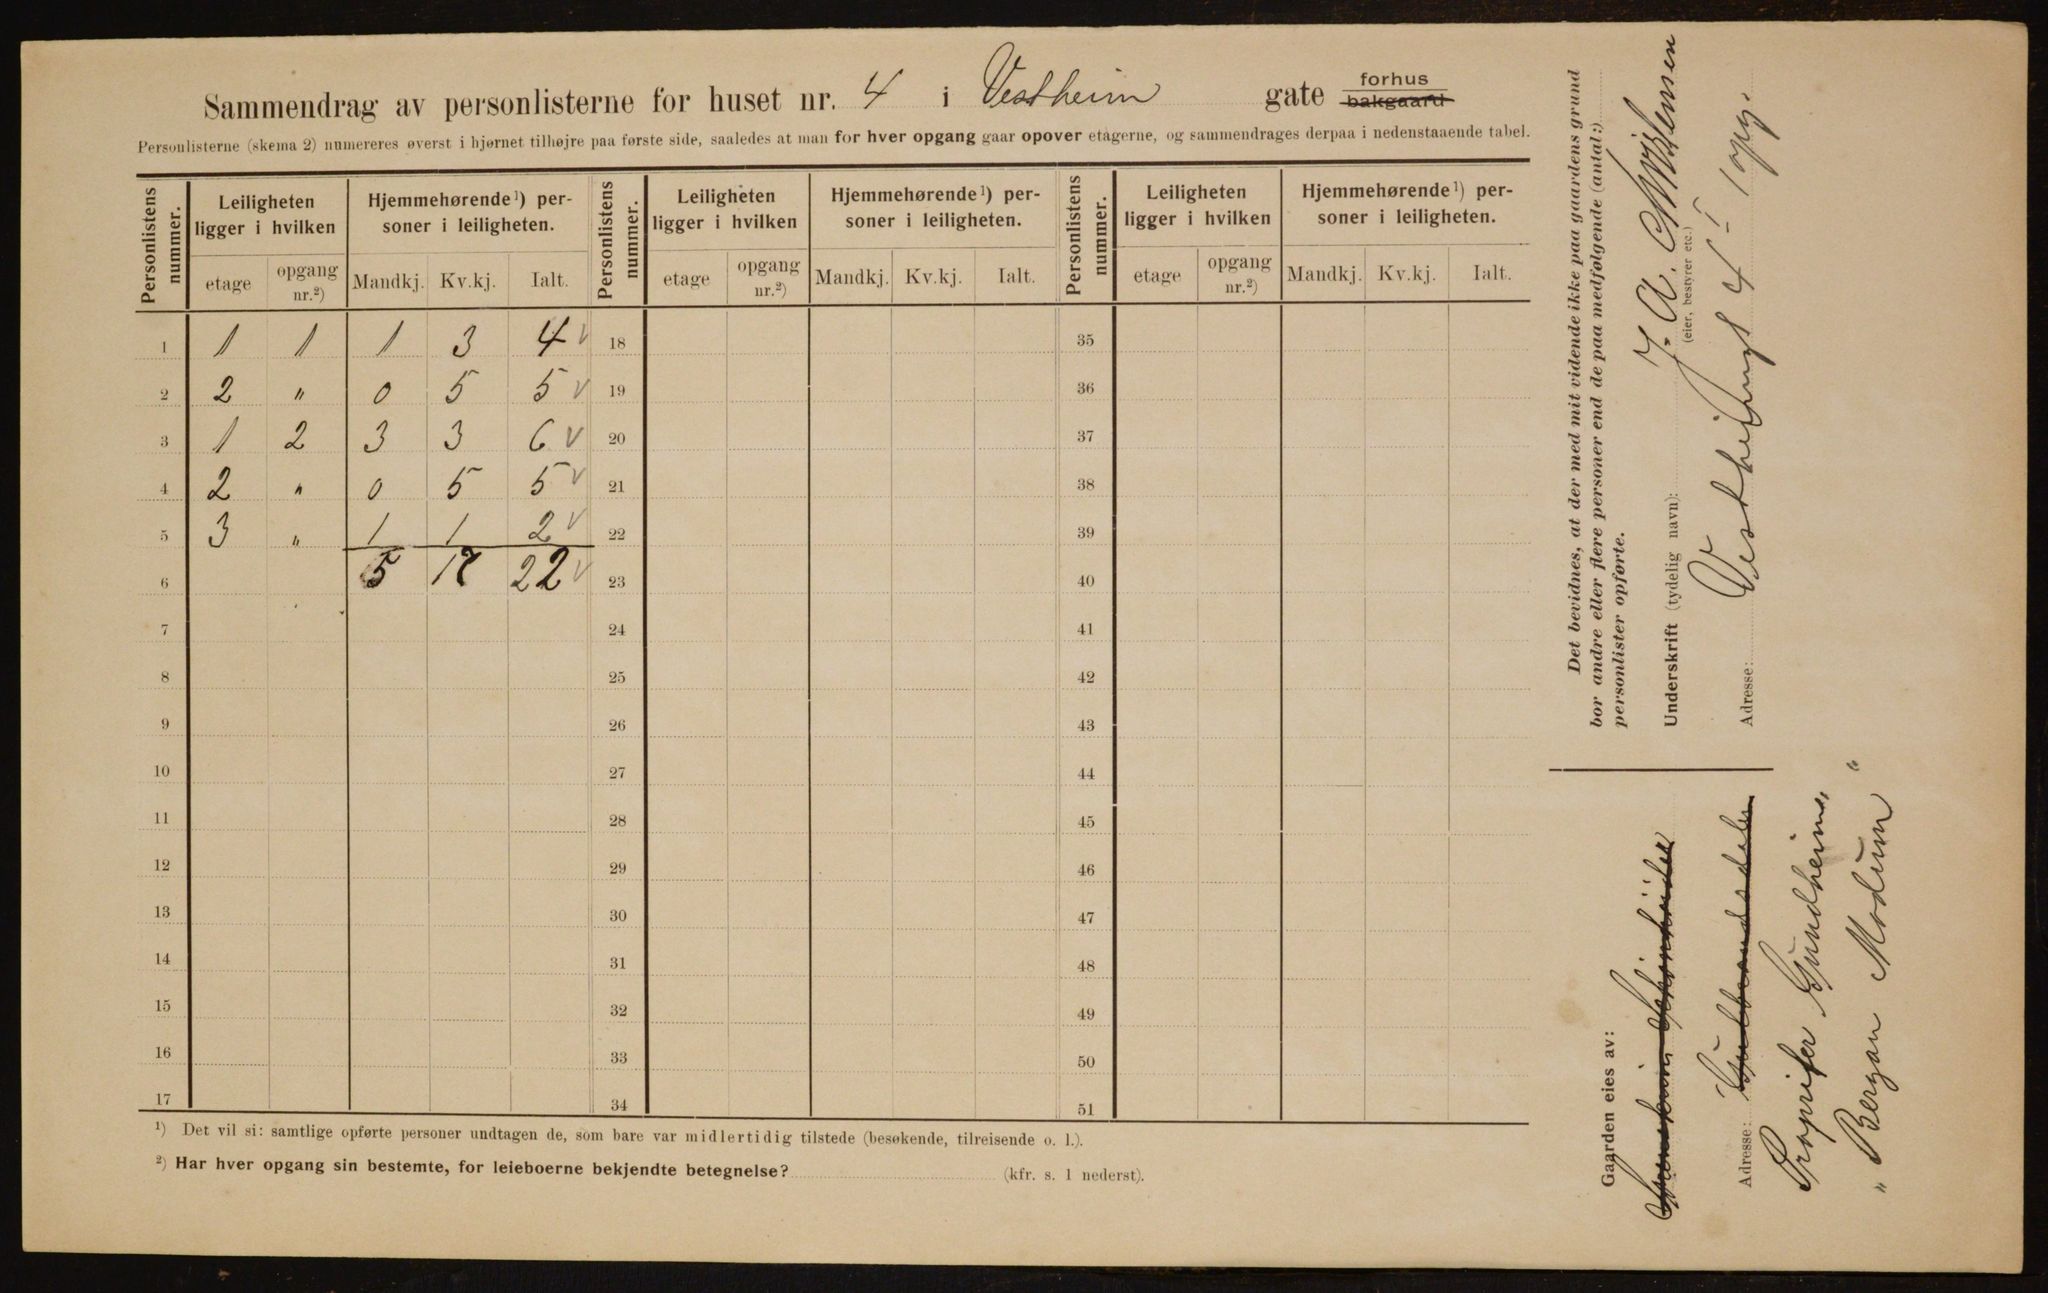 Sammendrag av personlisterne for huset nr. 4 i Vestheim gate forhus bakgaard
Personlisterne (skema 2) numereres øverst i hjørnet tilhøjre paa første side, saaledes at man for hver opgang gaar opover etagerne, og sammendrages derpaa i nedenstaaende tabel.
Personlistens nummer. Leiligheten ligger i hvilken Hjemmehørende¹) personer i leiligheten. Personlistens nummer. Leiligheten ligger i hvilken Hjemmehørende¹) personer i leiligheten. Personlistens nummer. Leiligheten ligger i hvilken Hjemmehørende¹) personer i leiligheten.
etage opgang nr.²) Mandkj. Kv.kj. Ialt. etage opgang nr.²) Mandkj. Kv.kj. Ialt. etage opgang nr.²) Mandkj. Kv.kj. Ialt.
1 1 1 1 3 4 √ 18 35
2 2 " 0 5 5 √ 19 36
3 1 2 3 3 6 √ 20 37
4 2 " 0 5 5 √ 21 38
5 3 " 1 1 2 √ 22 39
6 5 17 22 √ 23 40
7 24 41
8 25 42
9 26 43
10 27 44
11 28 45
12 29 46
13 30 47
14 31 48
15 32 49
16 33 50
17 34 51
¹) Det vil si: samtlige opførte personer undtagen de, som bare var midlertidig tilstede (besøkende, tilreisende o. l.).
²) Har hver opgang sin bestemte, for leieboerne bekjendte betegnelse? (kfr. s. 1 nederst).
Det bevidnes, at der med mit vidende ikke paa gaardens grund
bor andre eller flere personer end de paa medfølgende (antal:)
personlister opførte.
Underskrift (tydelig navn): J. A.
(eier, bestyrer etc.)
Adresse: Vestheimgt 4 - I opg.
Gaarden eies av:
Adresse: Gulbrandsdalen
Proprifer Gundheim,
"Bergan Modum"